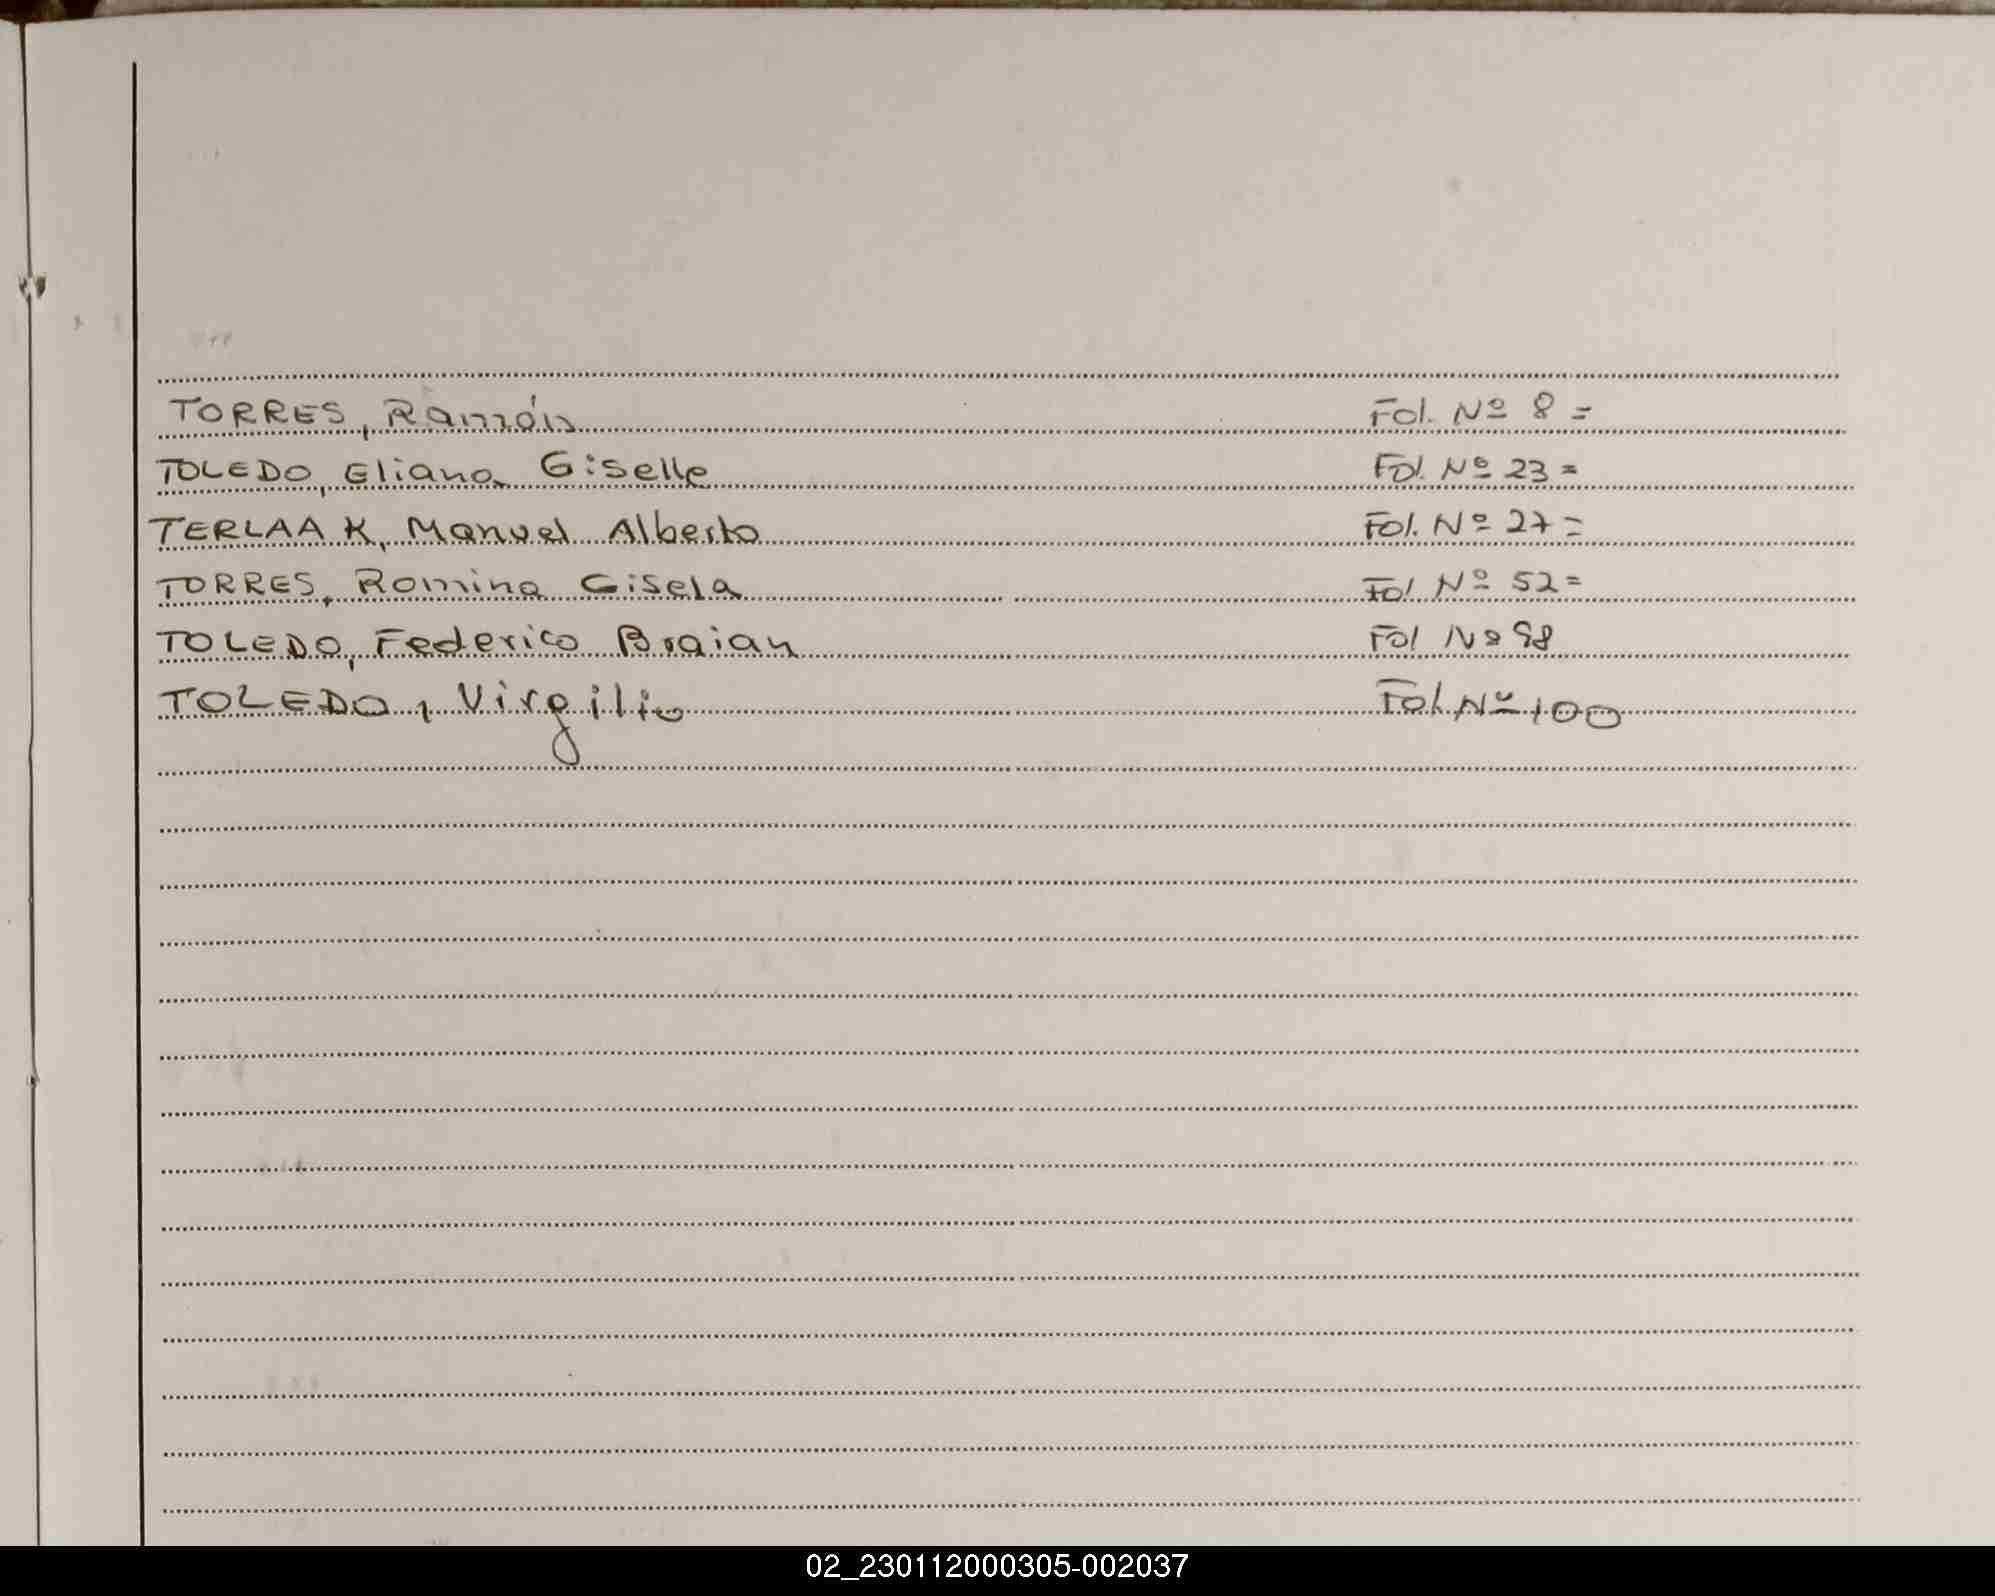 TORRES, Ramón Fol. Nº 8 =
TOLEDO, Eliana Giselle Fol. Nº 23 =
TERLAAK, Manuel Alberto Fol. Nº 27 =
TORRES, Romina Gisela Fol Nº 52 =
TOLEDO, Federico Braian Fol Nº 98
TOLEDO, Virgilio Fol. Nº 100
02_230112000305-002037